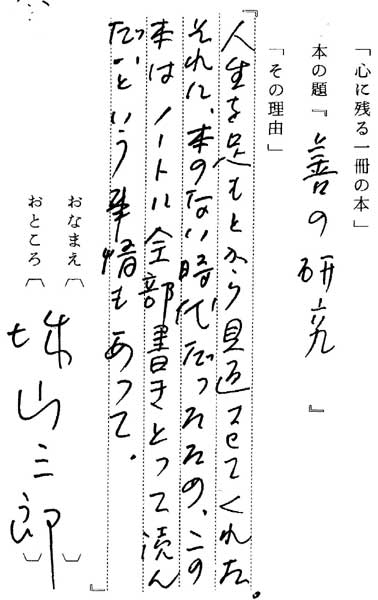 「心に残る一冊の本」
本の題『善の研究』
「その理由」
『人生を足もとから見返させてくれた。
それに、本のない時代だったため、この
本はノートに全部書きとって読ん
だという事情もあって。』
おなまえ〔城山三郎〕
おところ〔 〕